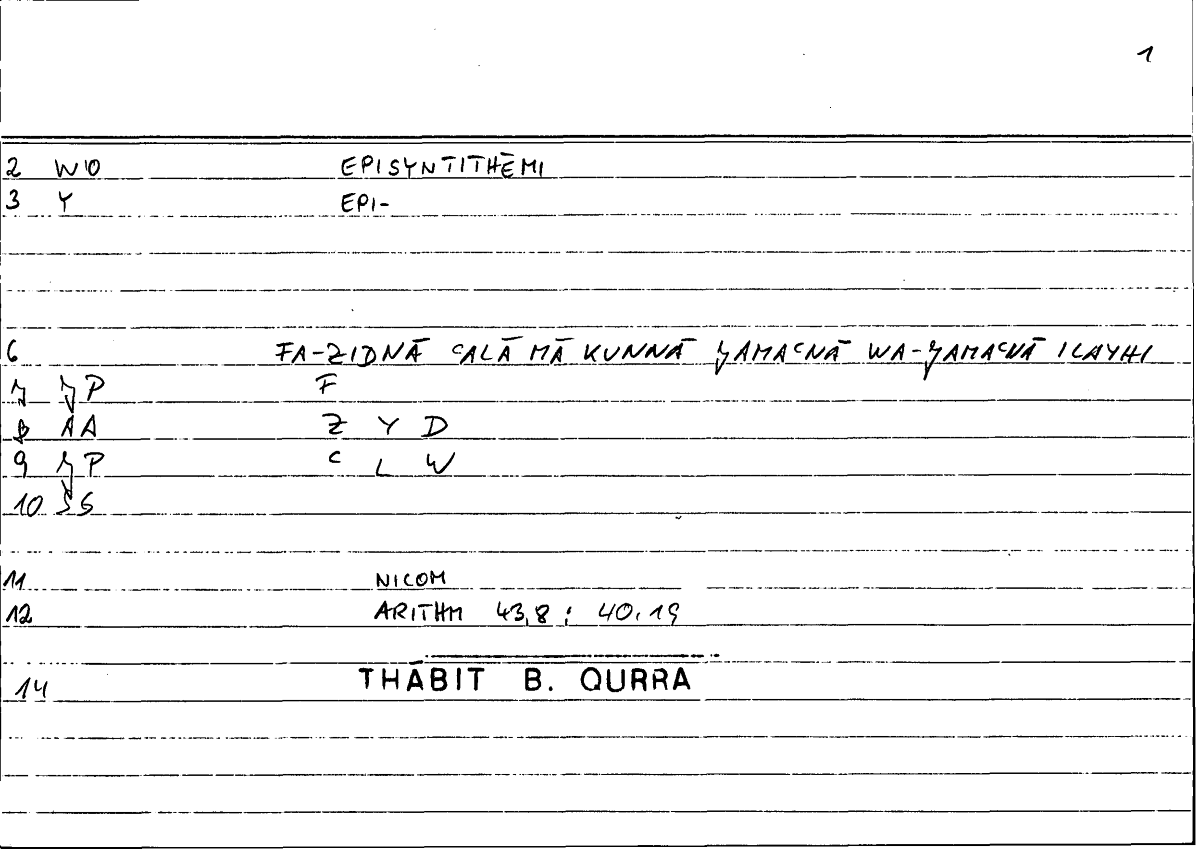 1
2 WO EPISYNTITHĒMI
3 Y EPI-
6 FA-ZIDNĀ ʿALĀ MĀ KUNNĀ ǦAMAʿNĀ WA-ǦAMAʿNĀ ILAYHI
7 ǦP F
8 AA Z Y D
9 ǦP ʿ L W
10 SS
11 NICOM
12 ARITHM 43,8 : 40,19
14 THĀBIT B. QURRA